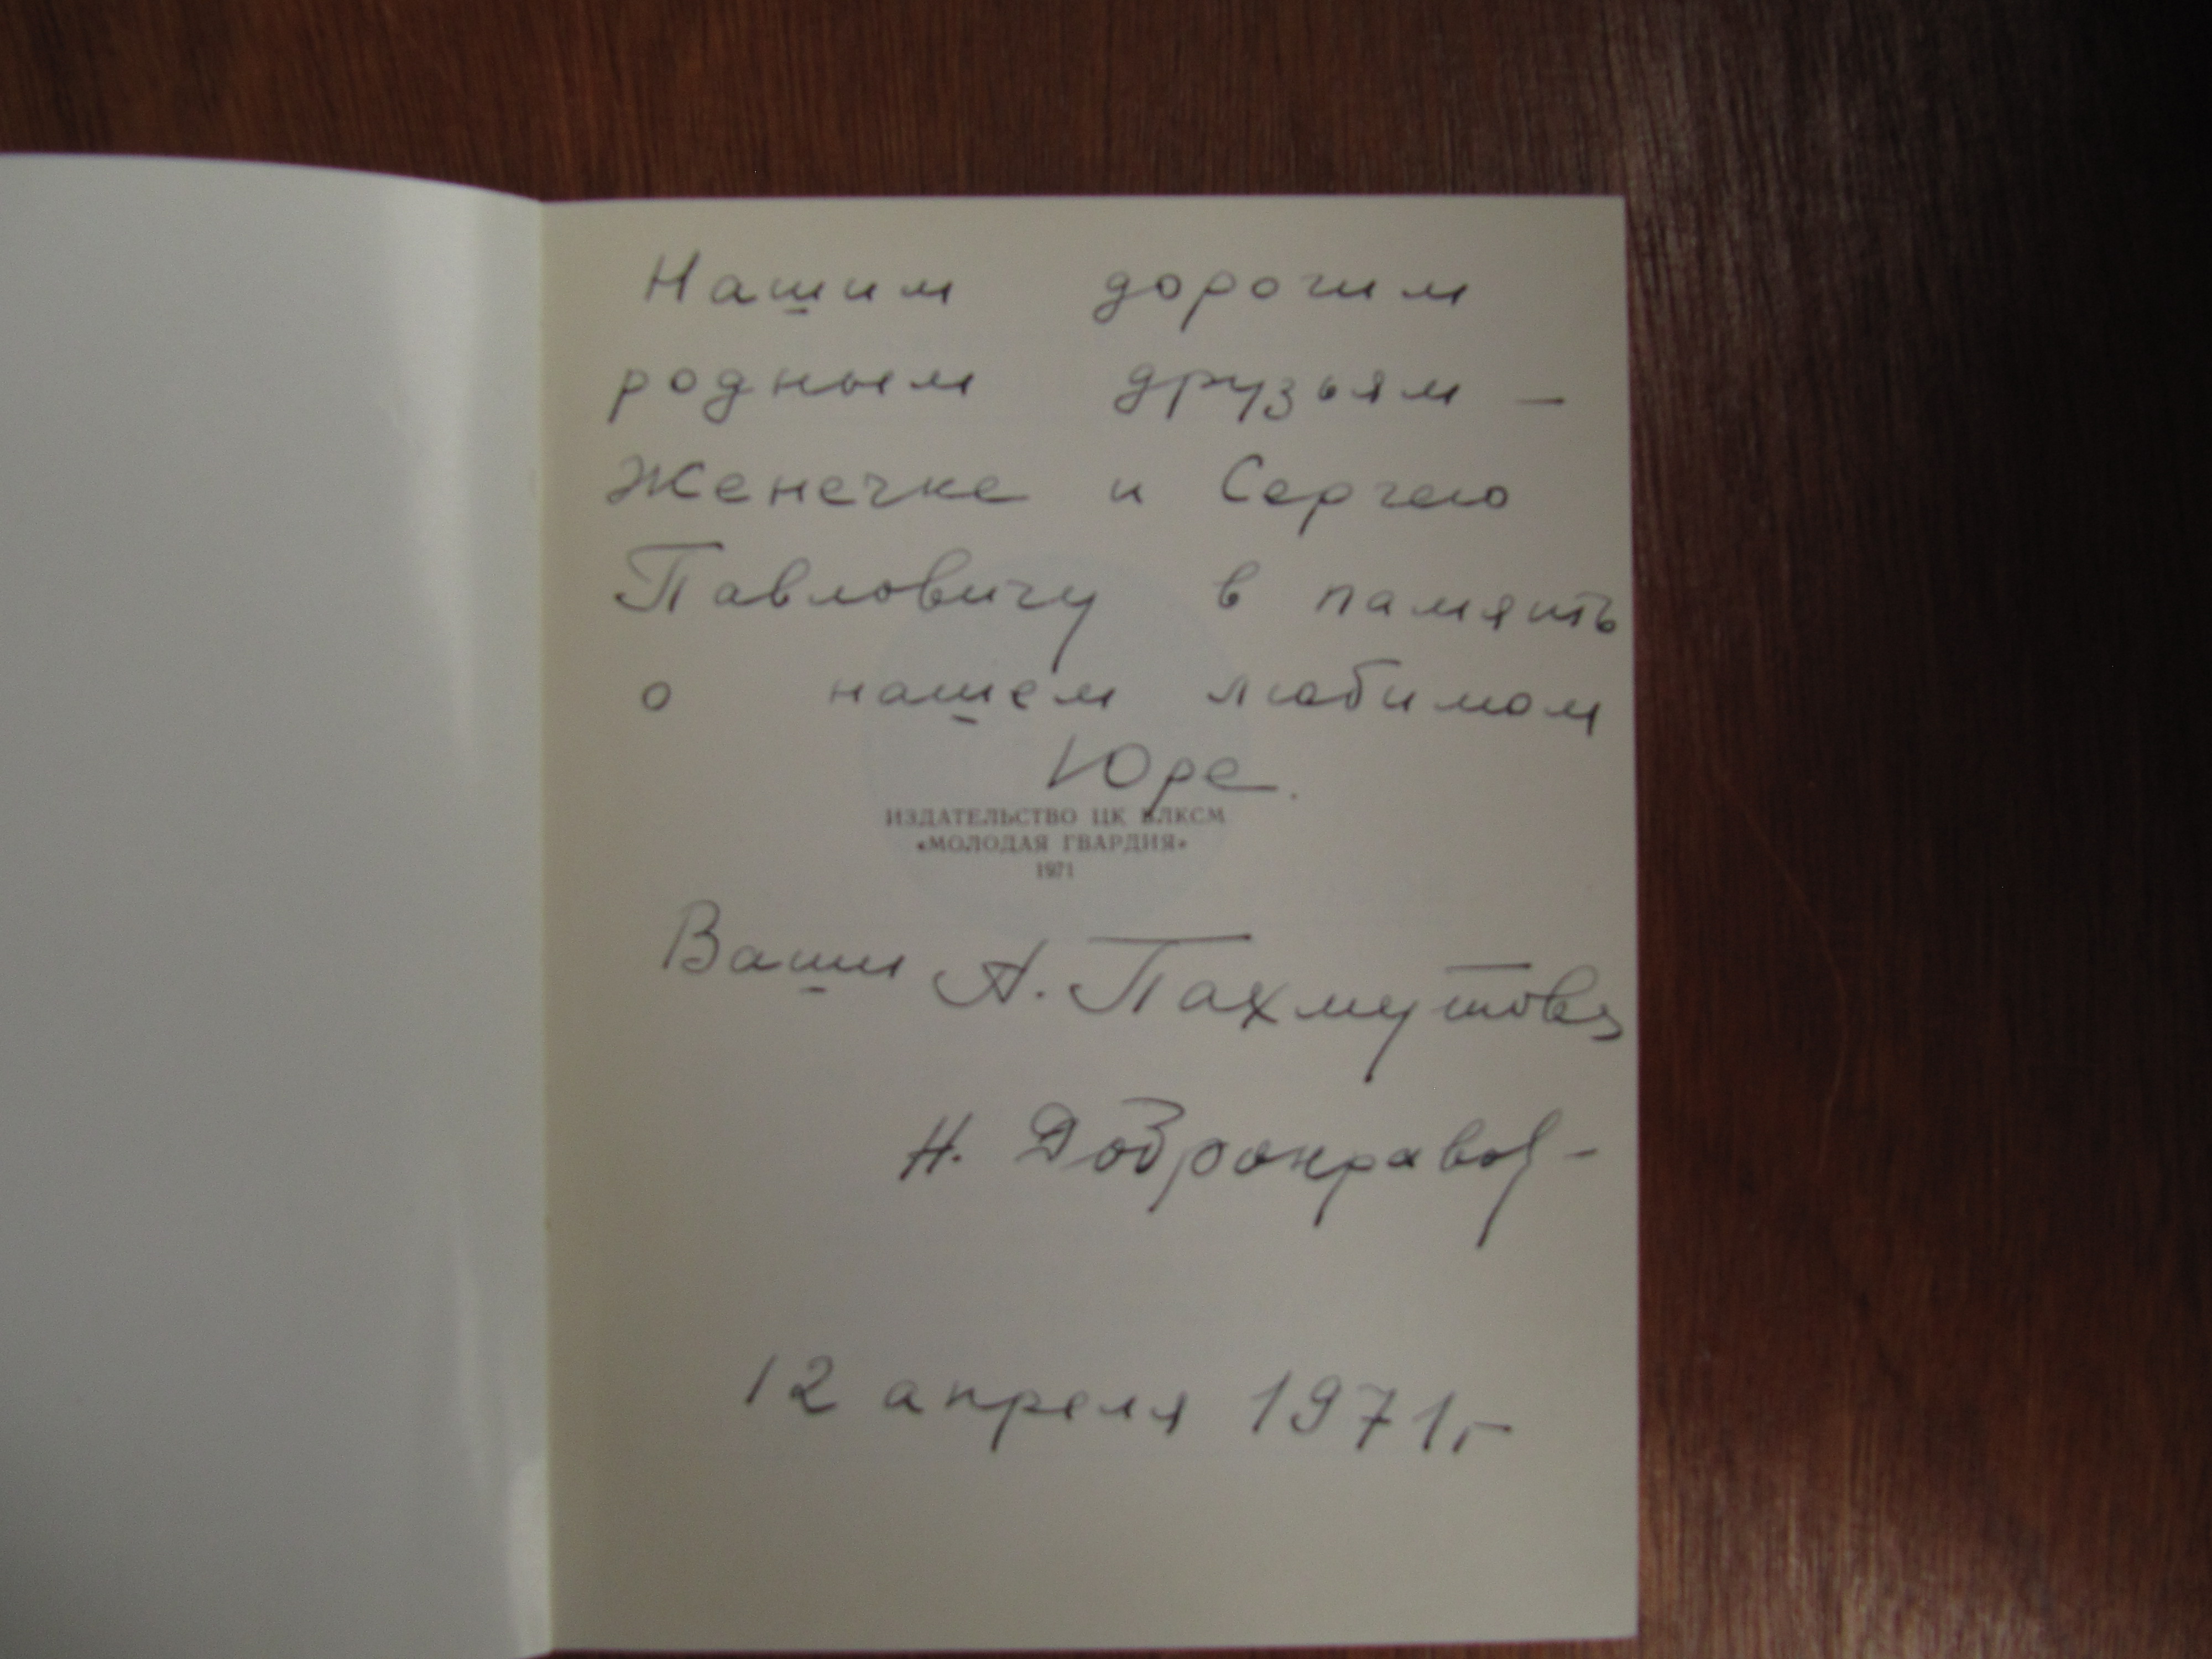 Нашим дорогим
родным друзьям –
Женечке и Сергею
Павловичу в память
о нашем любимом
Юре.
ИЗДАТЕЛЬСТВО ЦК ВЛКСМ
«МОЛОДАЯ ГВАРДИЯ»
1971
Ваши А. Пахмутова
Н. Добронравов –
12 апреля 1971г